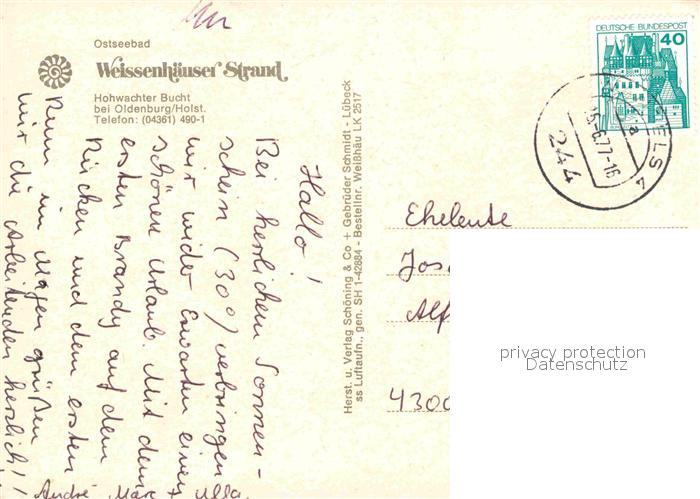 Ostseebad
Weissenhäuser Strand
Hohwachter Bucht
bei Oldenburg/Holst.
Telefon: (04361) 490-1
Hallo!
Bei herrlichen Sonnen-
schein (30°) verbringen
wir wider Erwarten einen
schönen Urlaub. Mit dem
ersten Brandy auf dem
Rücken und dem ersten
Rum im Magen grüßen
wir die Arbeitenden herzlich!!
André Marc Ulla
Herst. u. Verlag Schöning & Co + Gebrüder Schmidt - Lübeck
ss Luftaufn., gen. SH 1-42884 - Bestellnr. Weißhäu LK 2517
DEUTSCHE BUNDESPOST
40
-6.77-16
244
Eheleute
Jos
Alf
4300
privacy protection
Datenschutz